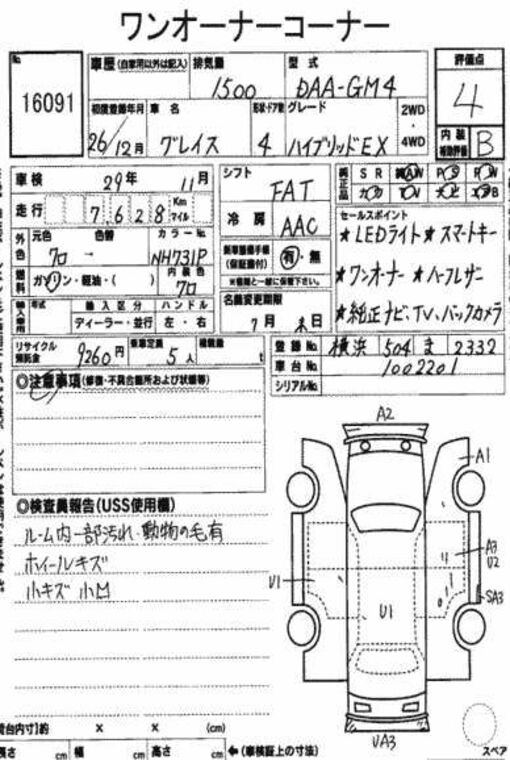 ワンオーナーコーナー
No.
16091
車歴 (自家用以外は記入)
排気量
1500
型式
DAA-GM4
評価点
4
初度登録年月
26/12月
車名
グレイス
形状・ドア数
4
グレード
ハイブリッドEX
2WD
・
4WD
内装
補助評価
B
車検
29年 11月
走行
7,628 Km マイル
シフト
FAT
冷房
AAC
純正品
SR AW PS PW
カワ TV ナビ エアB
外色
元色
クロ
色替
-
カラーNo.
NH731P
燃料
ガソリン・軽油・( )
内装色
クロ
新車整備手帳
(保証書付)
有・無
※備後と一緒に保管下さい。
セールスポイント
★LEDライト★スマートキー
★ワンオーナー★ハーフレザー
★純正ナビ、TV、バックカメラ
輸入車用
年式
輸入区分
ディーラー・並行
ハンドル
左・右
名義変更期限
7月末日
リサイクル
預託金
9260円
乗車定員
5人
積載量
t
登録No.
横浜 504 ま 2332
車台No.
1002201
シリアルNo.
◎注意事項(修復・不具合箇所および状態等)
◎検査員報告(USS使用欄)
ルーム内一部汚れ・動物の毛有
ホイールキズ
小キズ 小凹
A2
A1
A3
U2
U1
U1
SA3
UA3
スペア
荷台内寸】約 × × (cm)
長さ cm 幅 cm 高さ cm ←(車検証上の寸法)